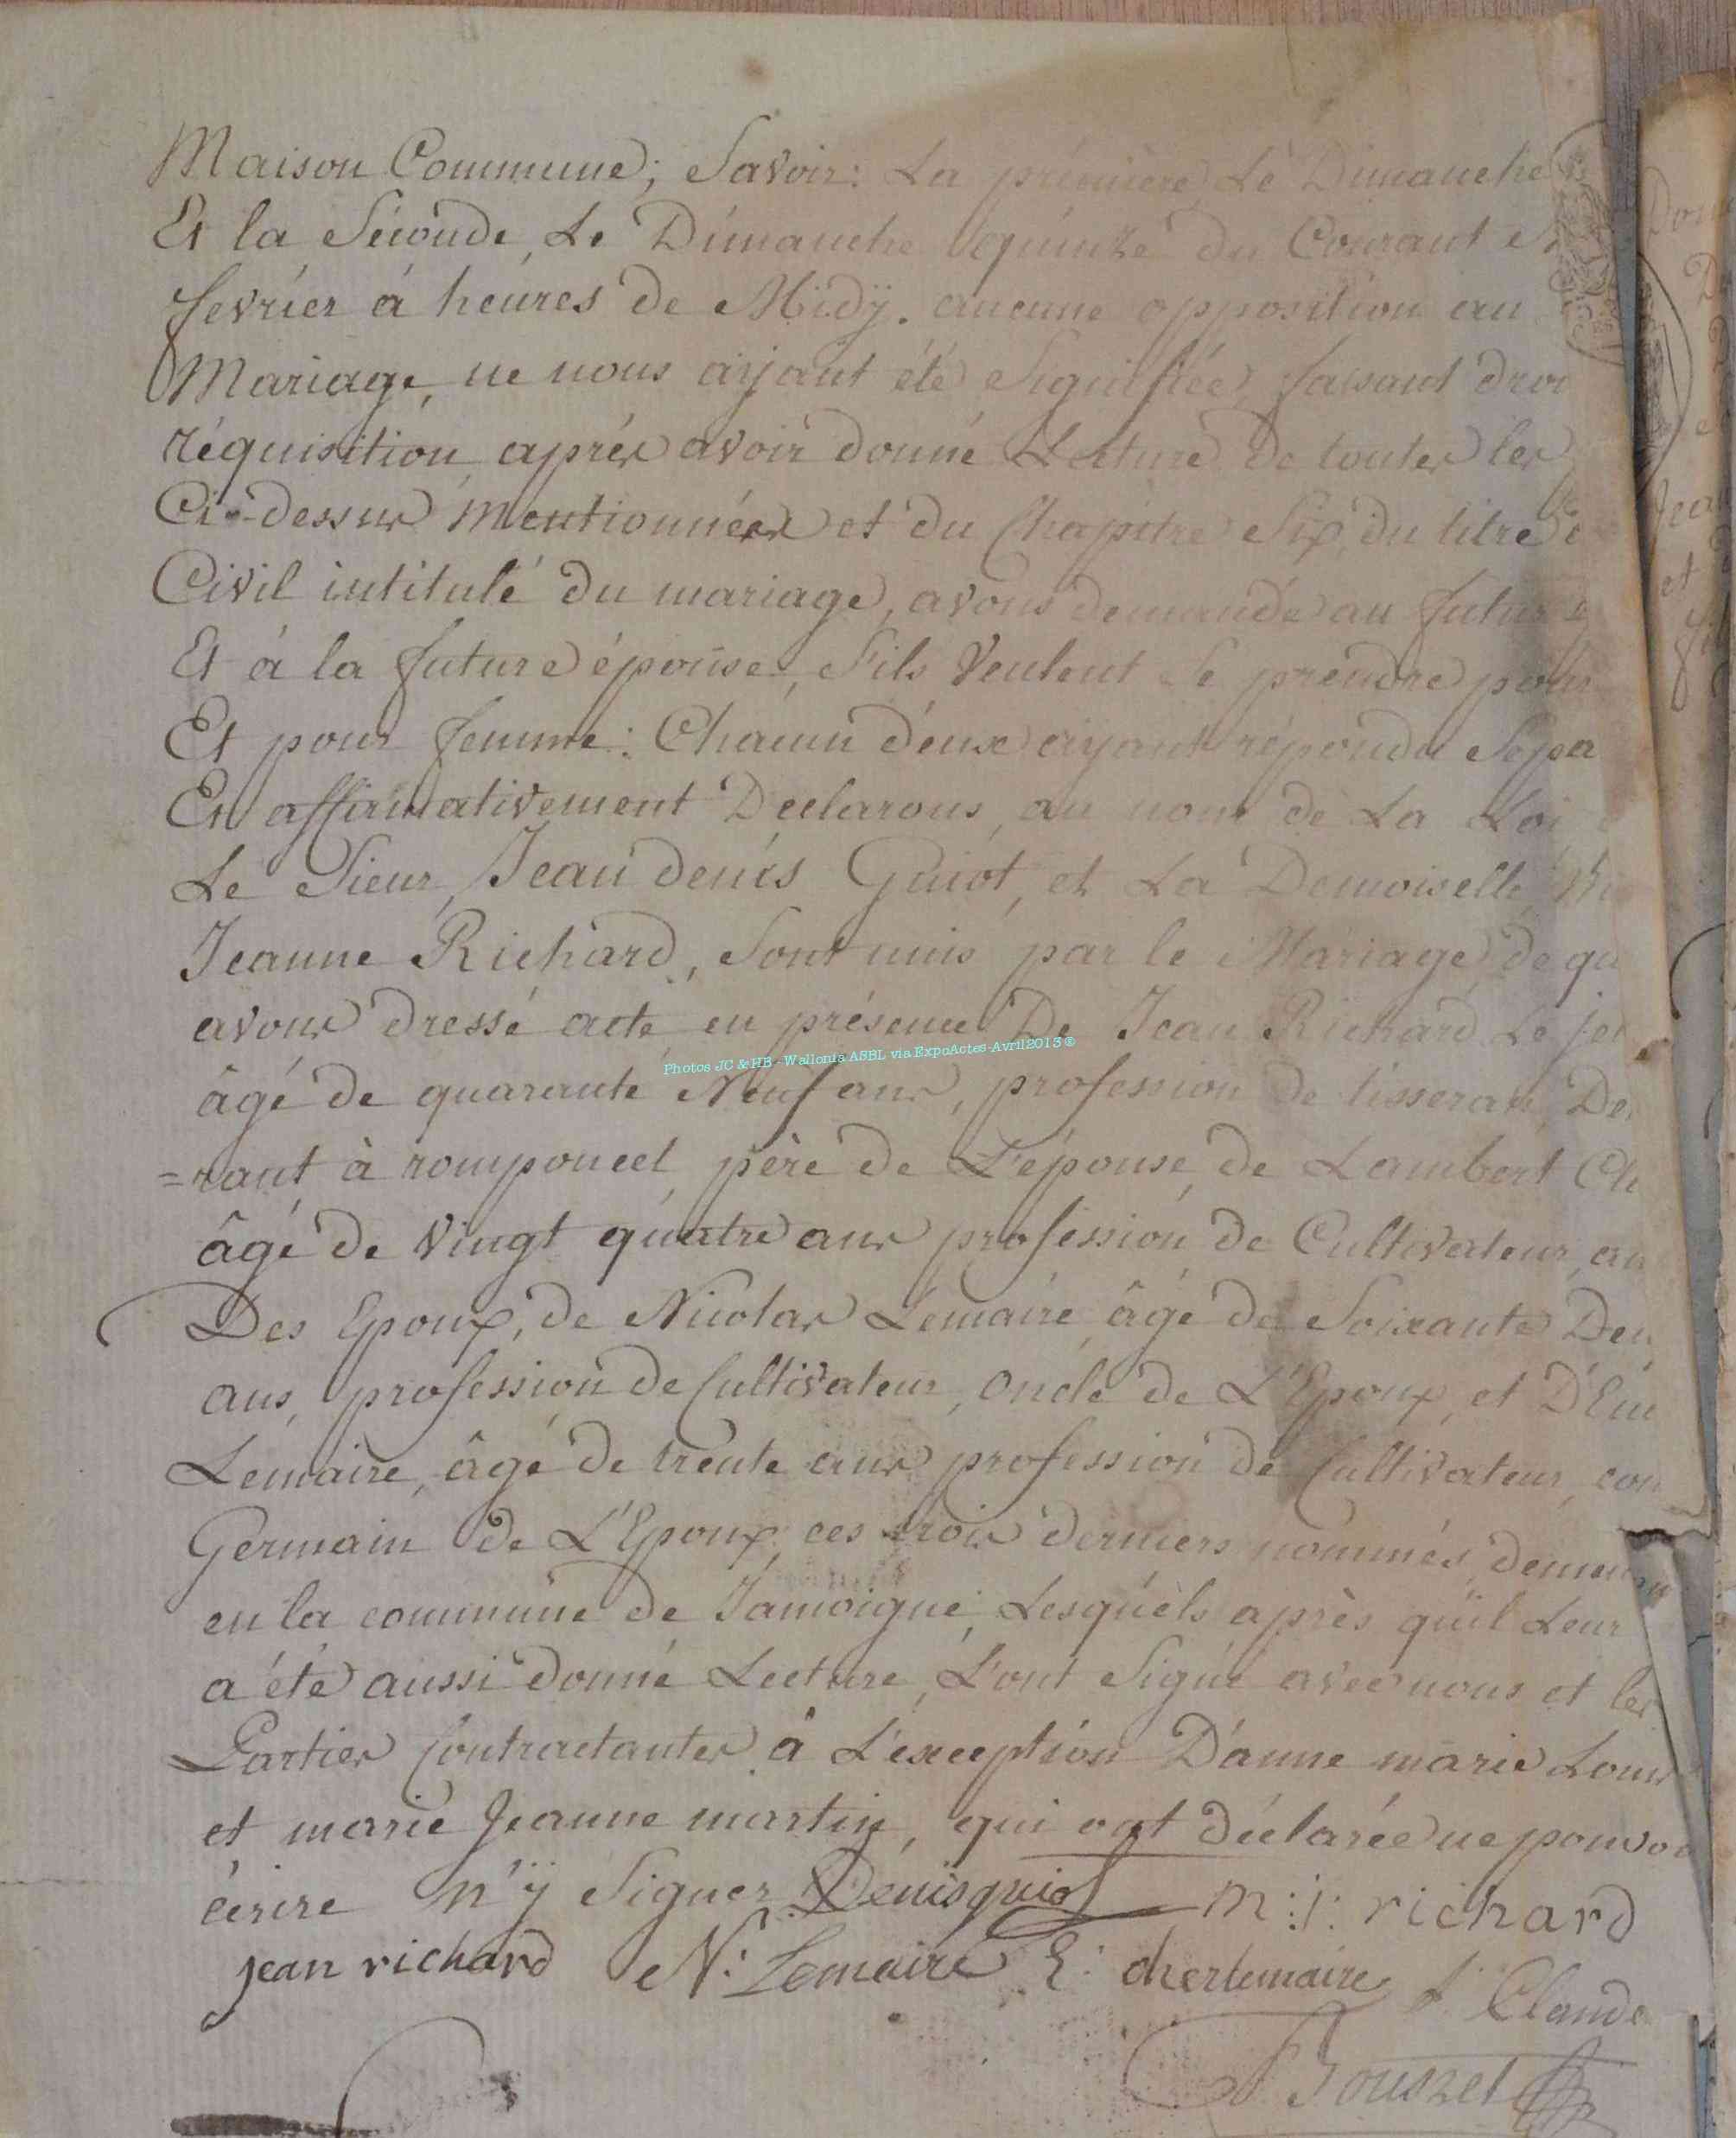 Maison Commune; Savoir: La prémière Le Dimanche
Et la Séconde, Le Dimanche quinze du Courant
fevrier à heures de Midÿ. aucune opposition au
Mariage, ne nous aÿant été Signifiée, faisant droi
réquisition après avoir donné Lecture de toutes les
Ci-dessus Mentionnées et du Chapitre Six, du titre
Civil intitulé du mariage, avons demandé au futur
Et à la future épouse, S'ils Veulent Se prendre pour
Et pour femme: Chacun d'eux ayant répondu Sepa
Et affirmativement Declarons, au nom de La Loi
Le Sieur, Jean denis Guiot, et La Demoiselle
Jeanne Richard, Sont unis par le Mariage, de qu
avons dressé acte, en présence De Jean Richard Le
Photos JC & HB - Wallonia ASBL via ExpoActes-Avril2013©
âgé de quarante Neuf ans, profession de tisseran, De
=rant à romponcel, père de L'épouse, de Lambert
âgé de Vingt quatre ans profession de Cultivateur, a
Des Epoux, de Nicolas Lémaire âgé de Soixante Deu
ans, profession de Cultivateur, oncle de L'Epoux, et D'
Lemaire, âgé de trente ans profession de Cultivateur, cou
Germain de L'Epoux, ces trois derniers nommés, demeu
en la commune de Jamoigne, Lesquéls après qu'il Leur
a été aussi donné Lecture, L'ont Signé avec nous et les
Parties Contractantes à L'exception D'anne marie
et marie Jeanne martin, qui ont déclarée ne pouvoi
écrire n'ÿ Signer Dénis guiot m: j: richard
jean richard N: Lemaire E: lemaire L: Claude